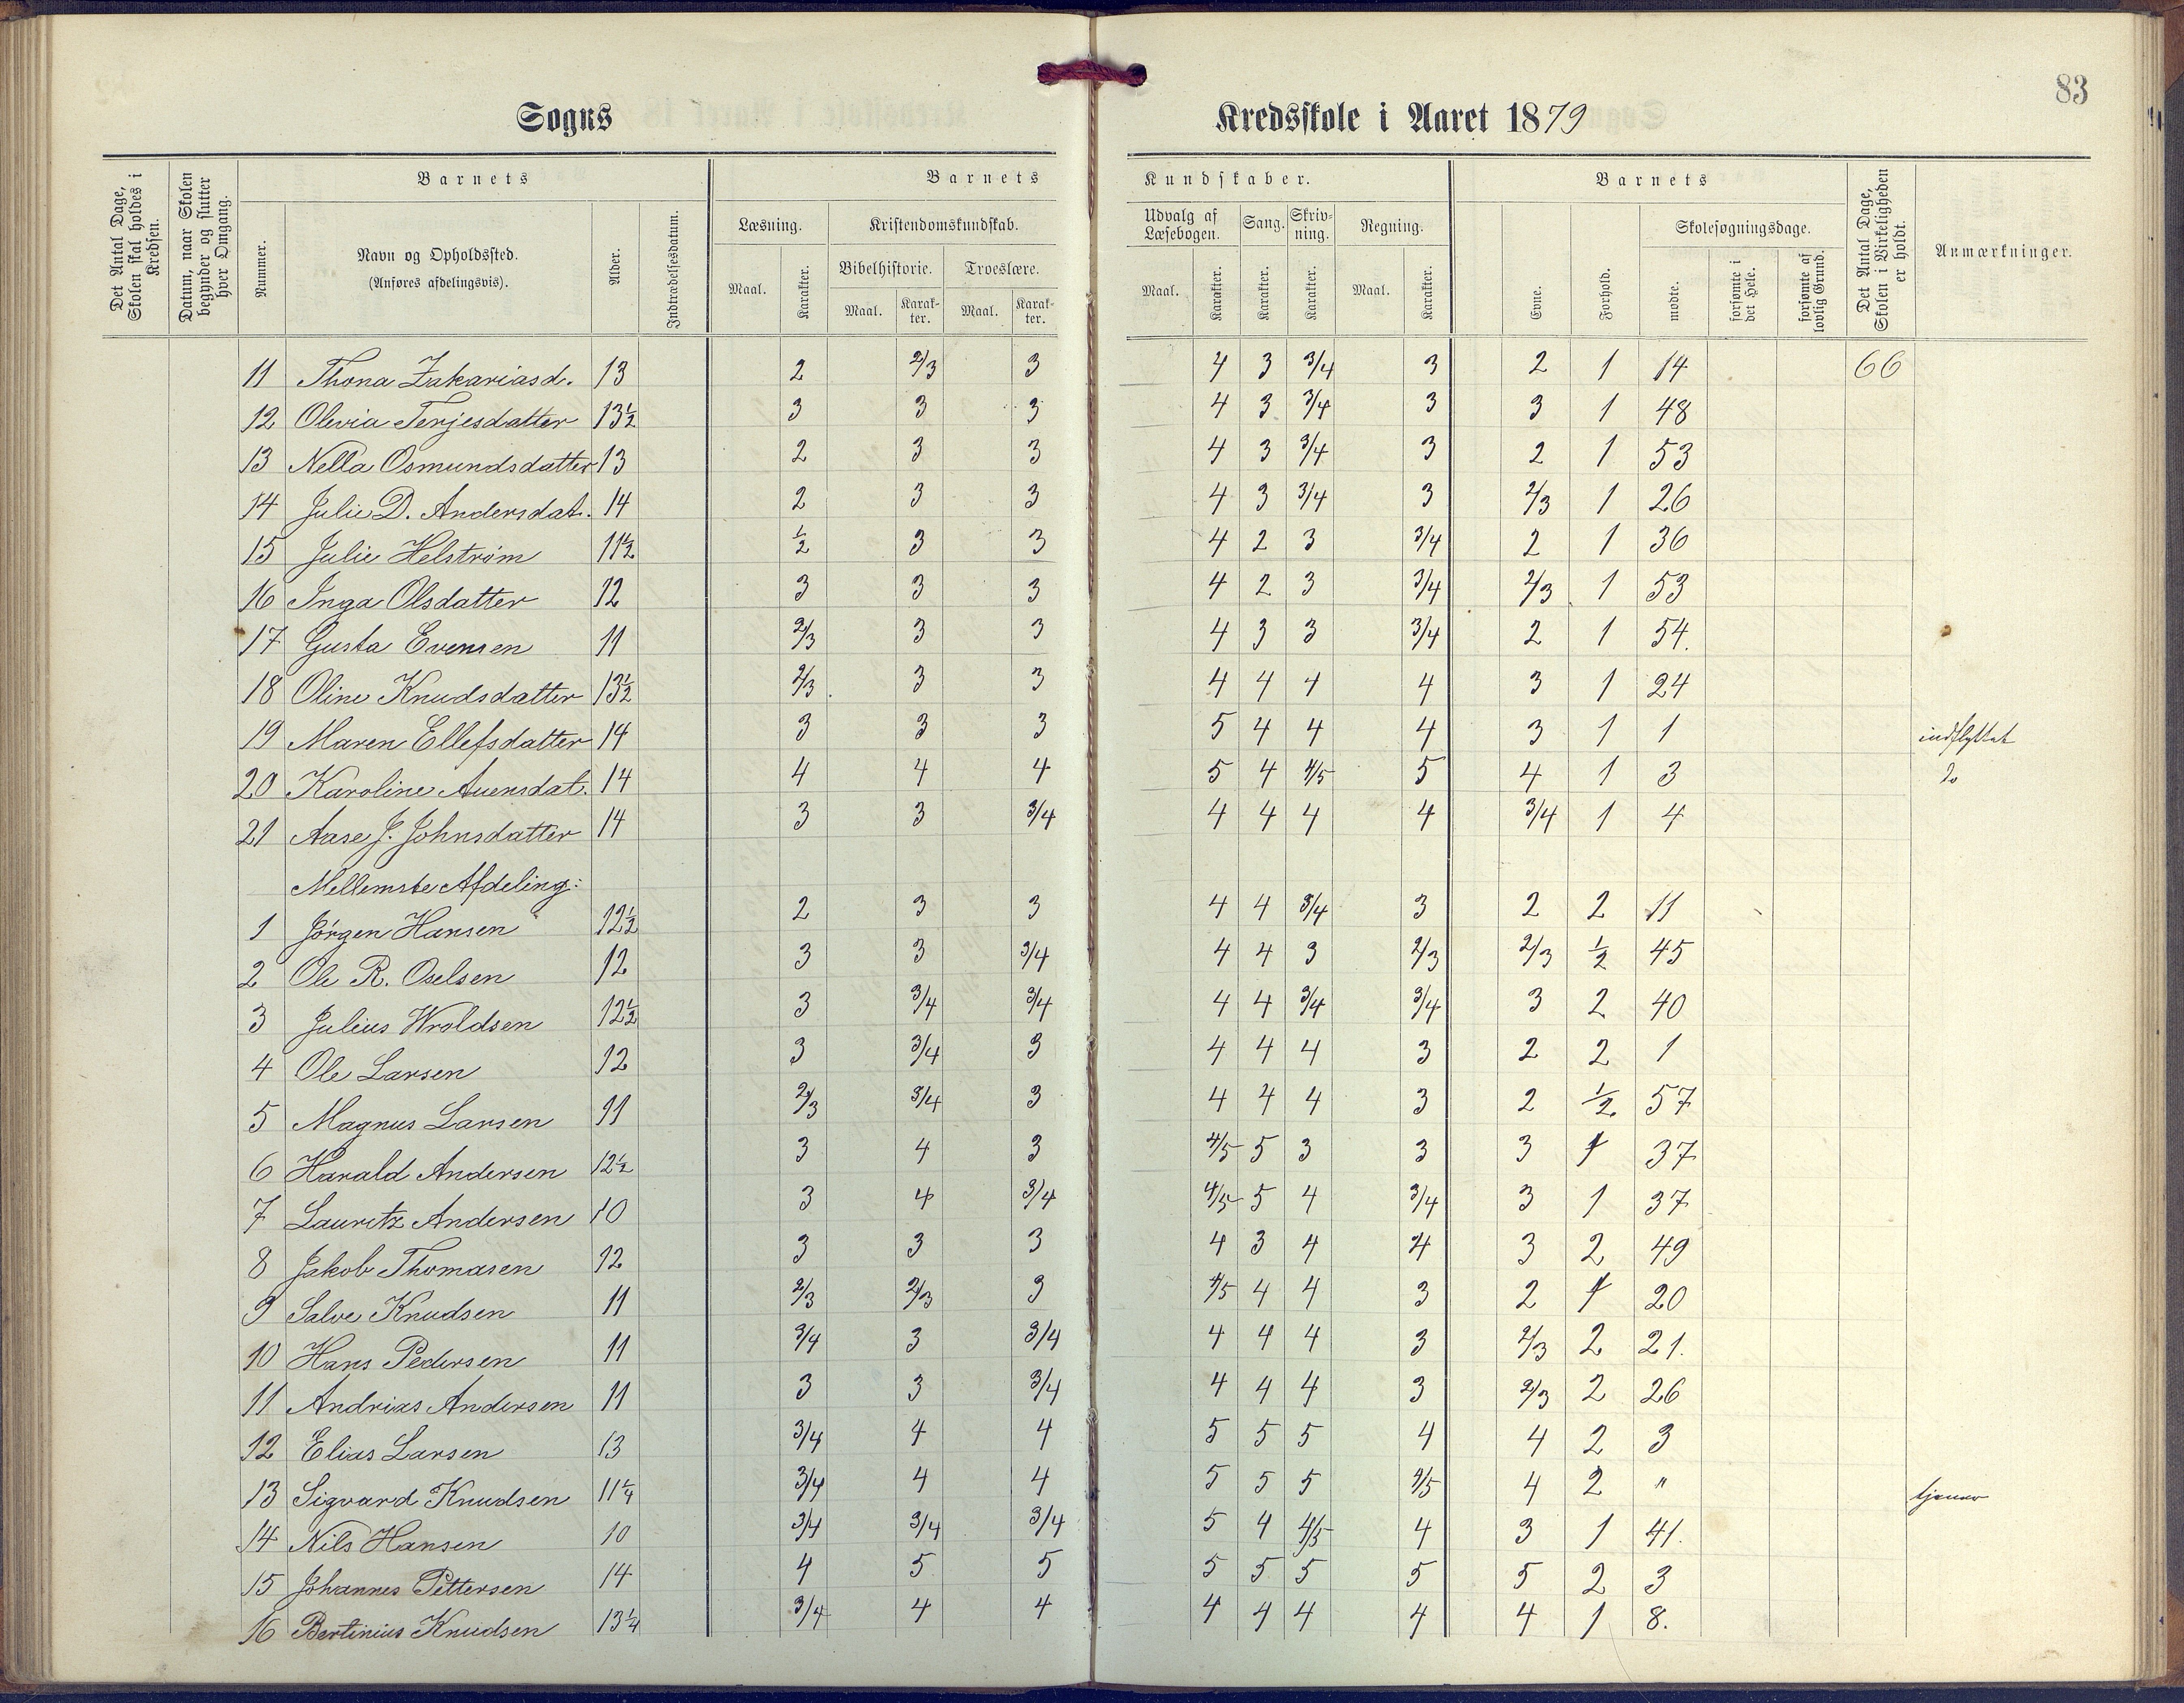 83
Sogns Kredsskole i Aaret 1879
Det Antal Dage, Skolen skal holdes i Kredsen.
Datum, naar Skolen begynder og slutter hver Omgang.
Barnets
Nummer.
Navn og Opholdssted.
(Anføres afdelingsvis).
Alder.
Indtrædelsesdatum.
Barnets Kundskaber.
Læsning.
Maal. Karakter.
Kristendomskundskab.
Bibelhistorie. Troeslære.
Maal. Karakter. Maal. Karakter.
Udvalg af Læsebogen. Sang. Skrivning. Regning.
Maal. Karakter. Karakter. Karakter. Maal. Karakter.
Barnets
Evne. Forhold.
Skolesøgningsdage.
mødte. forsømte i det Hele. forsømte af lovlig Grund.
Det Antal Dage, Skolen i Virkeligheden er holdt.
Anmærkninger.
11 Thona Zakariasd. 13 2 2/3 3 4 3 3/4 3 2 1 14 66
12 Olevia Terjesdatter 13½ 3 3 3 4 3 3/4 3 3 1 48
13 Nella Osmundsdatter 13 2 3 3 4 3 3/4 3 2 1 53
14 Julie D. Andersdat. 14 2 3 3 4 3 3/4 3 2/3 1 26
15 Julie Helstrøm 11½ ½ 3 3 4 2 3 3/4 2 1 36
16 Inga Olsdatter 12 3 3 3 4 2 3 3/4 2/3 1 53
17 Gusta Evensen 11 2/3 3 3 4 3 3 3/4 2 1 54.
18 Oline Knudsdatter 13½ 2/3 3 3 4 4 4 4 3 1 24
19 Maren Ellefsdatter 14 3 3 3 5 4 4 4 3 1 1 indflyttet
20 Karoline Auensdat. 14 4 4 4 5 4 4/5 5 4 1 3 Do
21 Aase J. Johnsdatter 14 3 3 3/4 4 4 4 4 3/4 1 4
Mellemste Afdeling:
1 Jørgen Hansen 12½ 2 3 3 4 4 3/4 3 2 2 11
2 Ole R. Oselsen 12 3 3 3/4 4 4 3 2/3 2/3 ½ 45
3 Julius Wroldsen 12½ 3 3/4 3/4 4 4 3/4 3/4 3 2 40
4 Ole Larsen 12 3 3/4 3 4 4 4 3 2 2 1
5 Magnus Larsen 11 2/3 3/4 3 4 4 4 3 2 ½ 57
6 Harald Andersen 12½ 3 4 3 4/5 5 3 3 3 1 37
7 Lauritz Andersen 10 3 4 3/4 4/5 5 4 3/4 3 1 37
8 Jakob Thomasen 12 3 3 3 4 3 4 4 3 2 49
9 Salve Knudsen 11 2/3 2/3 3 4/5 4 4 3 2 1 20
10 Hans Pedersen 11 3/4 3 3/4 4 4 4 3 2/3 2 21.
11 Andrias Andersen 11 3 3 3/4 4 4 4 3 2/3 2 26
12 Elias Larsen 13 3/4 4 4 5 5 5 4 4 2 3
13 Sigvard Knudsen 11¼ 3/4 4 4 5 5 5 4/5 4 2 " tjener
14 Nils Hansen 10 3/4 3/4 3/4 5 4 4/5 4 3 1 41.
15 Johannes Pettersen 14 4 5 5 5 5 5 5 5 2 3
16 Bertinius Knudsen 13¼ 3/4 4 4 4 4 4 4 4 1 8.